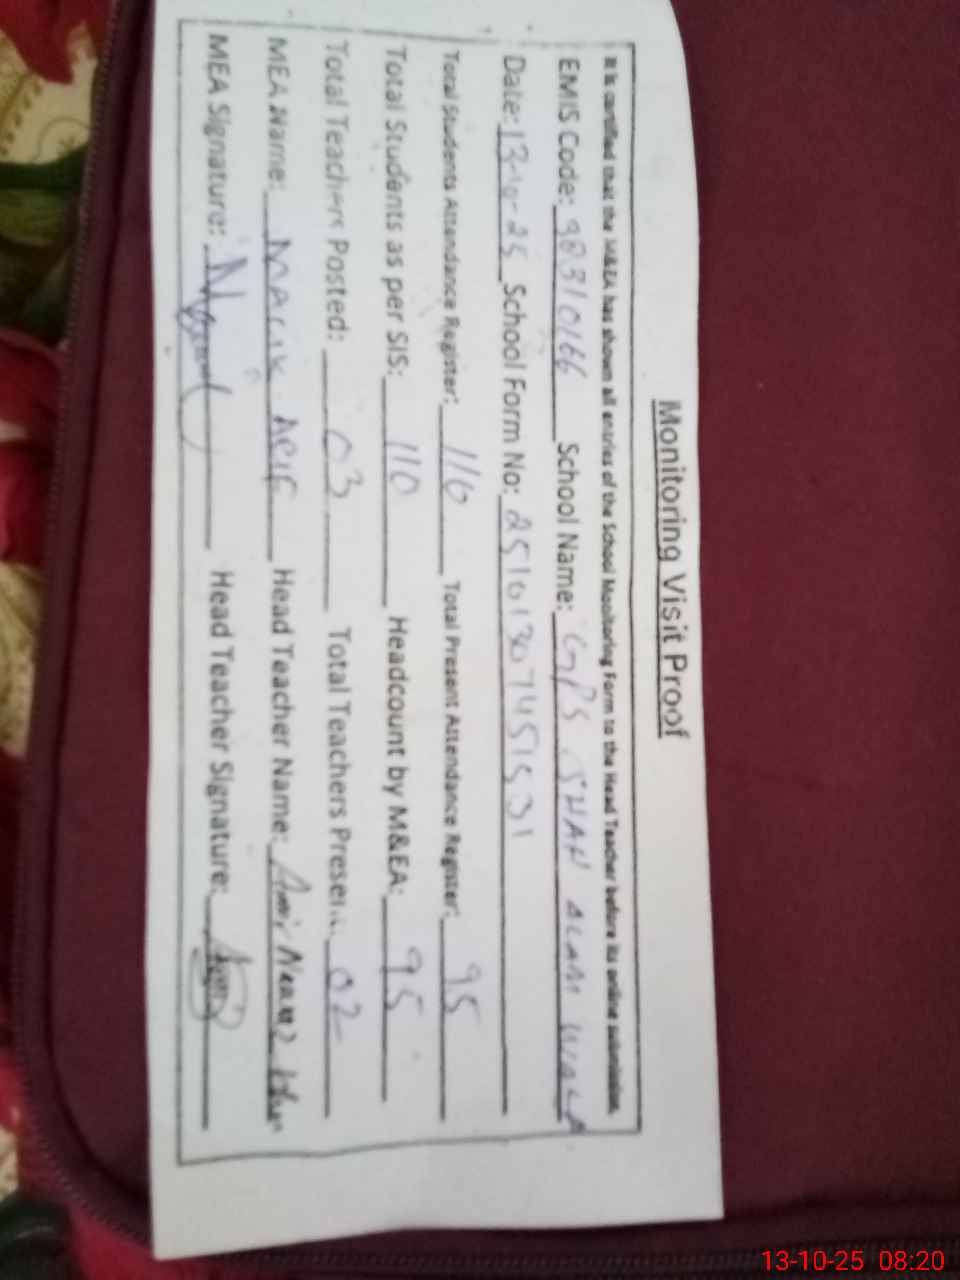 Monitoring Visit Proof
It is certified that the M&EA has shown all entries of the School Monitoring Form to the Head Teacher before its online submission.
EMIS Code: 98310166 School Name: GPS SHAH ALAM WALA
Date: 13-10-25 School Form No: 25101307451531
Total Students Attendance Register: 110 Total Present Attendance Register: 95
Total Students as per SIS: 110 Headcount by M&EA: 95
Total Teachers Posted: 03 Total Teachers Present: 02
MEA Name: MALIK ARIF Head Teacher Name:
MEA Signature: Head Teacher Signature:
13-10-25 08:20